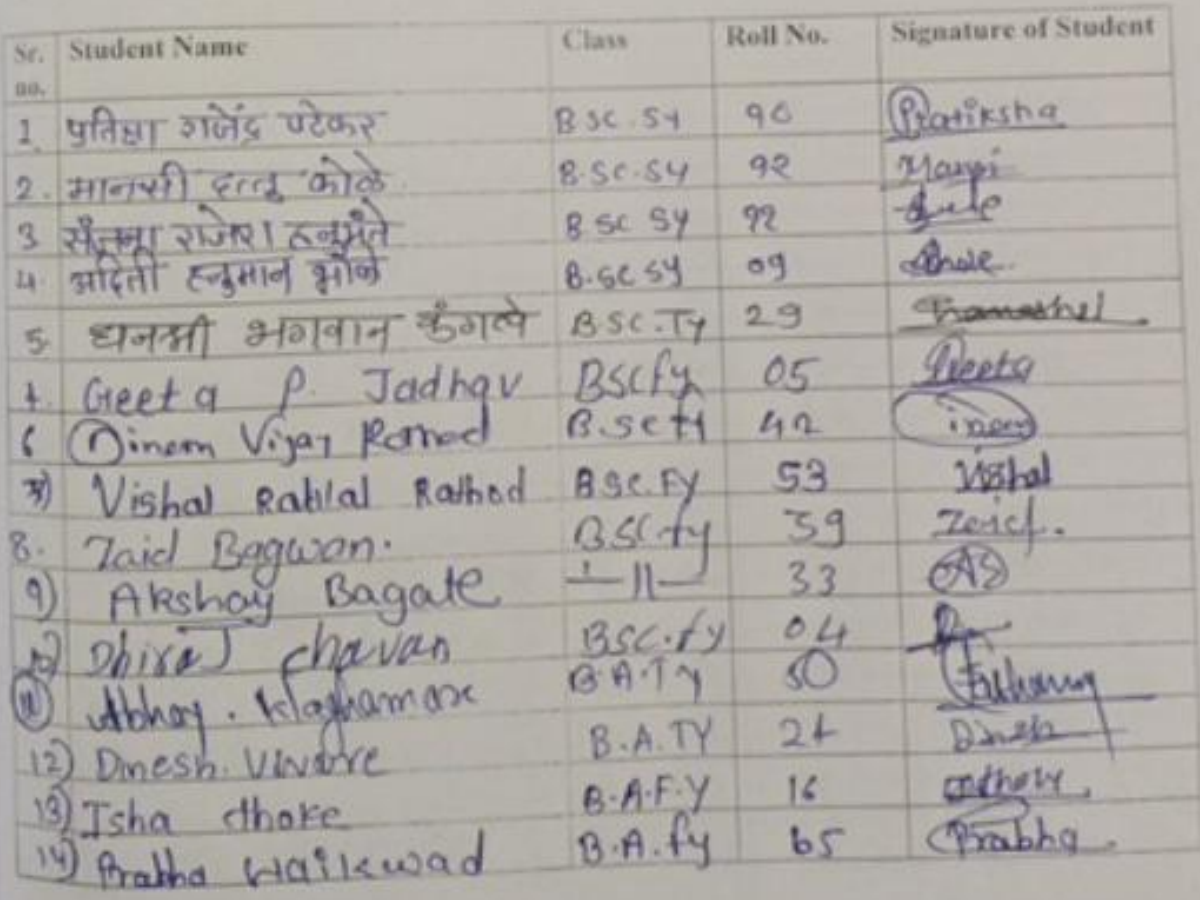 Sr. no. Student Name Class Roll No. Signature of Student
1. प्रतिक्षा राजेंद्र पटेकर BSC.SY 90 Pratiksha
2. मानसी दत्तू कोळे B.SC.SY 92
3 संजना राजेश हनुमंते BSC SY
4. अदिती हनुमान B.SC SY 09
5. धनश्री भगवान BSC.TY 29
Geeta P. Jadhav BSCfy 05 Geeta
6 Vijay B.SC 42
Vishal Rathod BSC.FY 53 Vishal
8. Zaid Bagwan. BSC.fy 39 Zaid.
9) Akshay Bagate —11— 33 AS
Dhiraj chavan BSC.fy 04
Abhay. Waghamare B.A.TY 50
12) Dinesh. B.A.TY Dinesh
13) Isha dhoke B.A.F.Y 16
14) Prabha Gaikwad B.A.fy 65 Prabha.